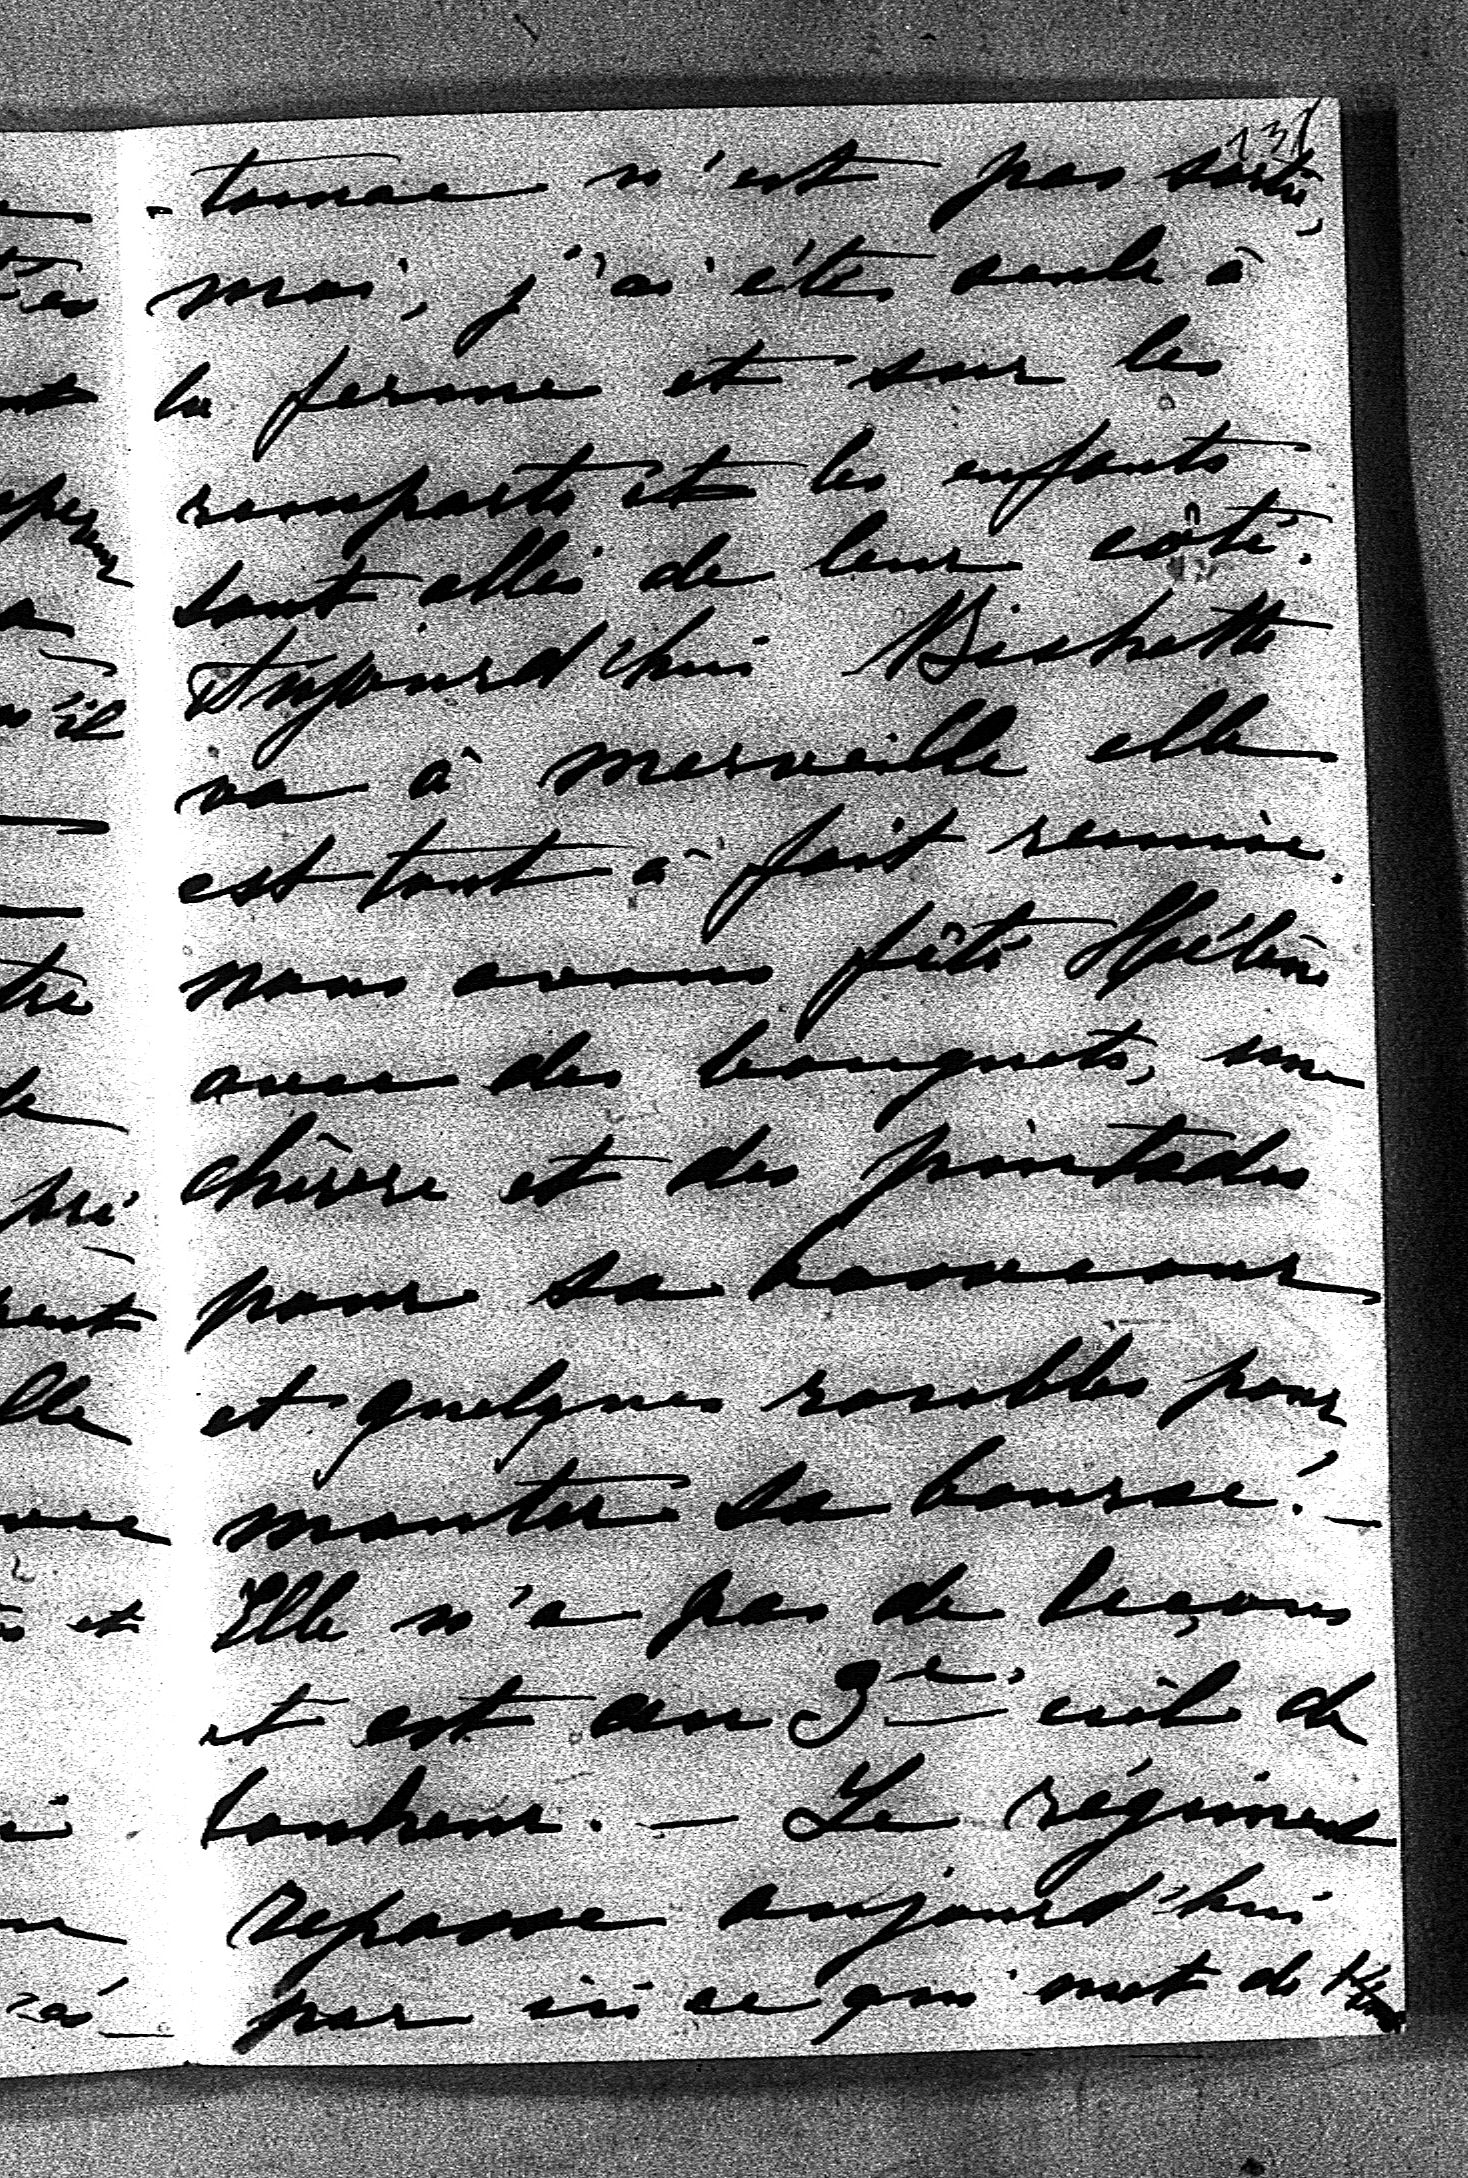 131
tomae n'est pas sorti,
moi, j'ai été seule à
la ferme et sur les
remparts et les enfants
sont allés de leur côté.
Aujourd'hui Bichette
va à merveille elle
est tout à fait remise.
nous avons fêté Hélène
avec des bouquets, une
chèvre et des pintades
pour sa basse cour
et quelques roubles pour
monter sa bourse. —
Elle n'a pas de leçons
et est au 3e. ciel de
bonheur. — Le régiment
repasse aujourd'hui
par ici ce qui met de